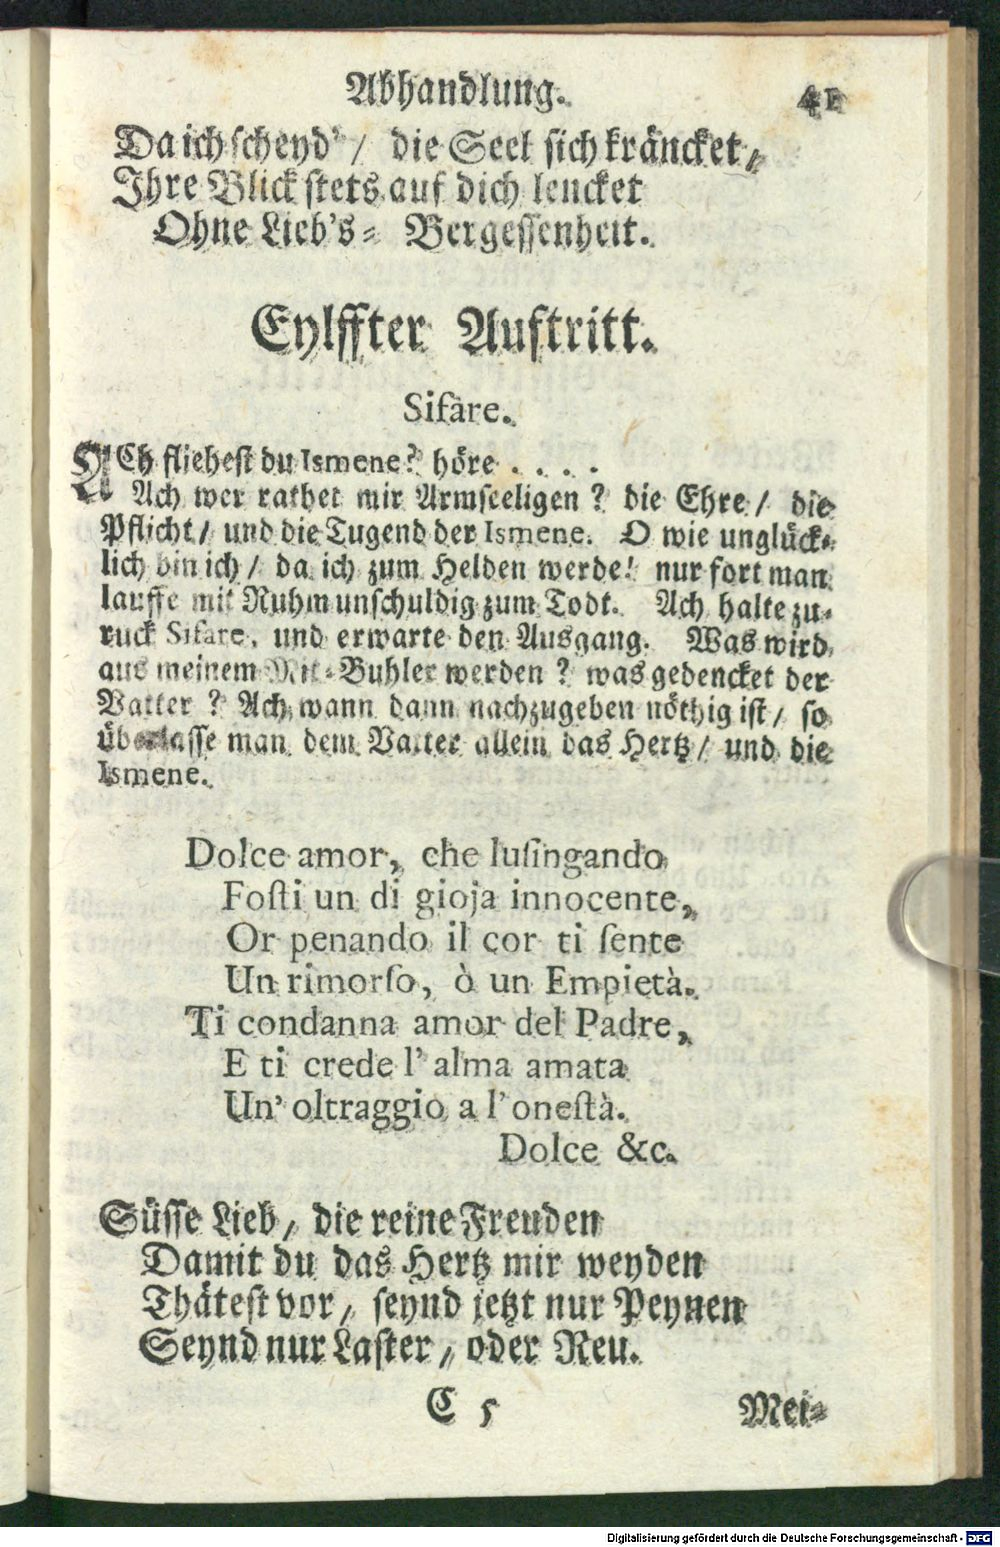 Abhandlung. 41
Da ich scheyd' / die Seel sich kräncket,
Ihre Blick stets auf dich lencket
Ohne Lieb's= Vergessenheit.
Eylffter Auftritt.
Sifare.
ACh fliehest du Ismene? höre . . . .
Ach wer rathet mir Armseeligen? die Ehre / die
Pflicht / und die Tugend der Ismene. O wie unglück=
lich bin ich / da ich zum Helden werde! nur fort man
lauffe mit Ruhm unschuldig zum Todt. Ach halte zu=
ruck Sifare, und erwarte den Ausgang. Was wird
aus meinem Mit=Buhler werden? was gedencket der
Vatter? Ach wann dann nachzugeben nöthig ist / so
überlasse man dem Vatter allein das Hertz / und die
Ismene.
Dolce amor, che lusingando
Fosti un di gioja innocente,
Or penando il cor ti sente
Un rimorso, ò un Empietà.
Ti condanna amor del Padre,
E ti crede l' alma amata
Un' oltraggio a l' onestà.
Dolce &c.
Süsse Lieb / die reine Freuden
Damit du das Hertz mir weyden
Thätest vor / seynd jetzt nur Peynen
Seynd nur Laster / oder Reu.
C 5 Mei=
Digitalisierung gefördert durch die Deutsche Forschungsgemeinschaft - DFG